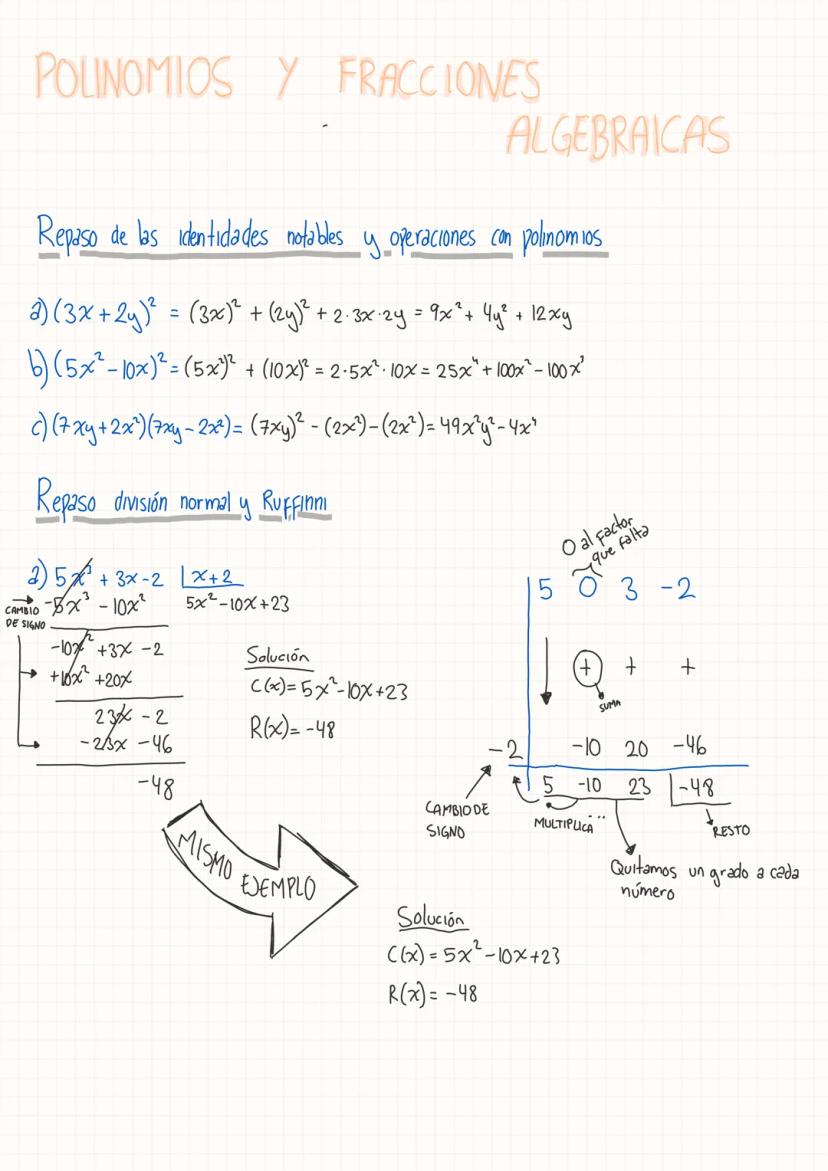 POLINOMIOS Y FRACCIONES
ALGEBRAICAS
Repaso de las identidades notables y operaciones con polinomios
a) (3x+2y)² = (3x)² + (2y)² + 2·3x·2y = 9x² + 4y² + 12xy
b) (5x² - 10x)² = (5x²)² + (10x)² = 2·5x²·10x = 25x⁴ + 100x² - 100x³
c) (7xy + 2x²)(7xy - 2x²) = (7xy)² - (2x²) - (2x²) = 49x²y² - 4x⁴
Repaso división normal y Ruffinni
a) 5x³ + 3x - 2 | x+2
-5x³ - 10x² 5x² - 10x + 23
CAMBIO
DE SIGNO
-10x² + 3x - 2
+10x² + 20x
23x - 2
-23x - 46
-48
Solución
C(x) = 5x² - 10x + 23
R(x) = -48
0 al factor
que falta
5 0 3 -2
+ + +
SUMA
-2 -10 20 -46
5 -10 23 |-48
CAMBIO DE
SIGNO
MULTIPLICA...
RESTO
Quitamos un grado a cada
número
MISMO
EJEMPLO
Solución
C(x) = 5x² - 10x + 23
R(x) = -48